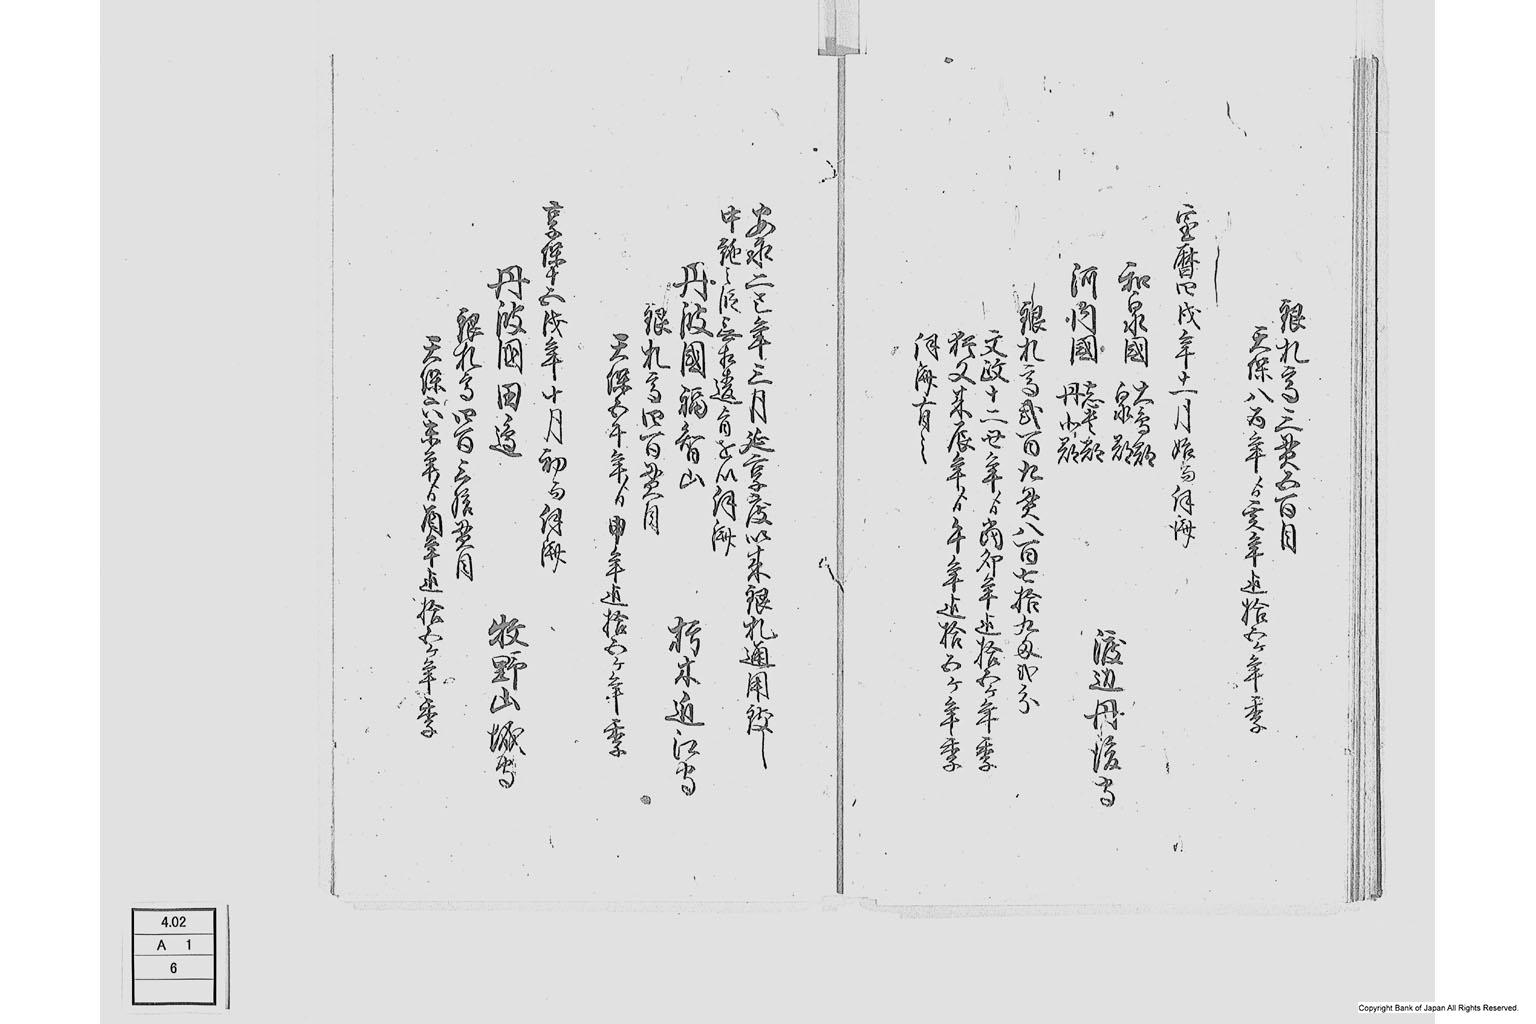 銀札高三貫五百目
天保八酉年ゟ亥年迄拾五ケ年季
宝暦四戌年十一月始而伺済
和泉國 大鳥郡 泉郡
河内國 志紀郡 丹北郡
渡辺丹後守
銀札高弐百九貫八百七拾九匁弐分
文政十二丑年ゟ卯年迄拾五ケ年季
猶又来辰年ゟ午年迄拾五ケ年季
伺済有之
安永二巳年三月延享度以来銀札通用致し
中絶之儀無相違旨を以伺済
丹波國福智山
朽木近江守
銀札高四百貫目
天保五午年ゟ申年迄拾五ケ年季
享保十五戌年十月初而伺済
丹波國田邊
牧野山城守
銀札高四百三拾貫目
天保六未年ゟ酉年迄拾五ケ年季
4.02
A 1
6
Copyright Bank of Japan All Rights Reserved.